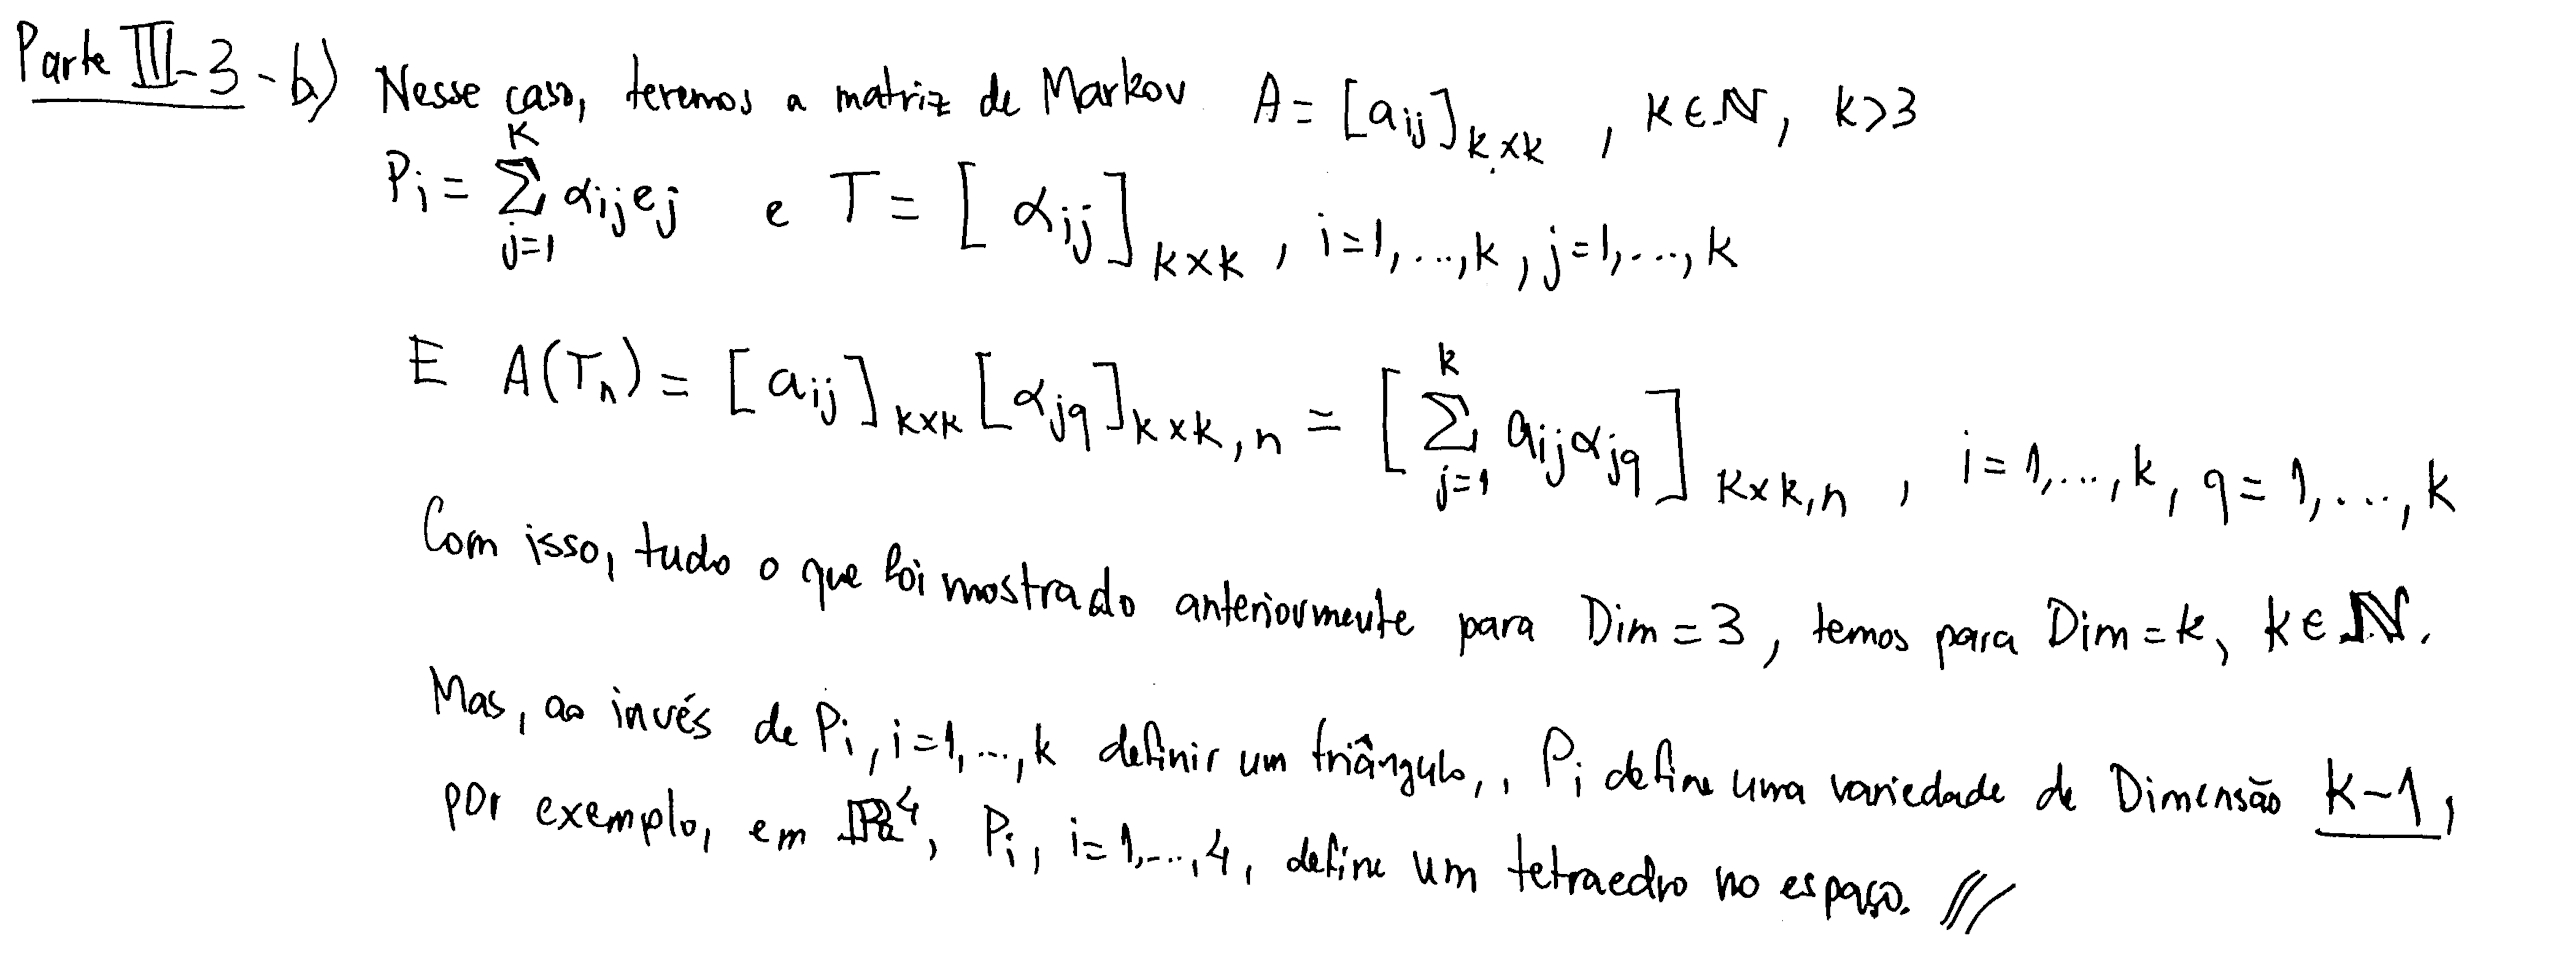 Parte III-3-b) Nesse caso, teremos a matriz de Markov A = [aij]k×k , k∈ℕ, k>3
Pi = ∑_{j=1}^{k} αij ej e T = [αij]k×k , i=1,...,k, j=1,...,k
E A(Tn) = [aij]k×k [αjq]k×k,n = [∑_{j=1}^{k} aij αjq]k×k,n , i=1,...,k, q=1,...,k
Com isso, tudo o que foi mostrado anteriormente para Dim = 3, temos para Dim = k, k∈ℕ.
Mas, ao invés de Pi, i=1,...,k definir um triângulo,, Pi define uma variedade de Dimensão k-1,
por exemplo, em ℝ⁴, Pi, i=1,...,4, define um tetraedro no espaço. ///